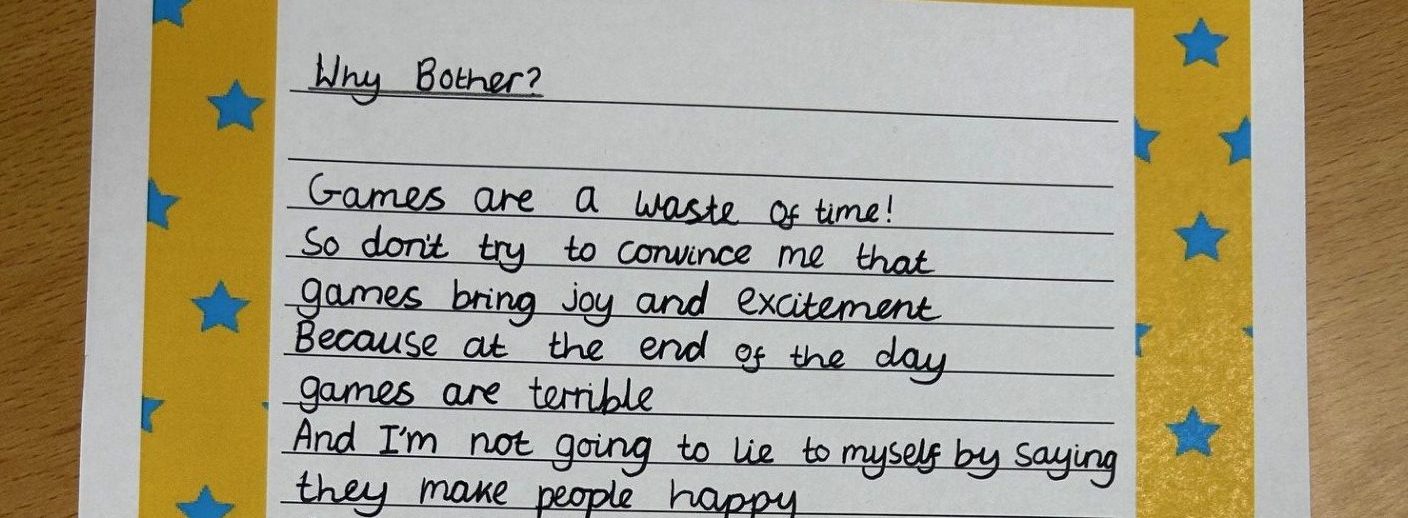 Why Bother?
Games are a waste of time!
So don't try to convince me that
games bring joy and excitement
Because at the end of the day
games are terrible
And I'm not going to lie to myself by saying
they make people happy